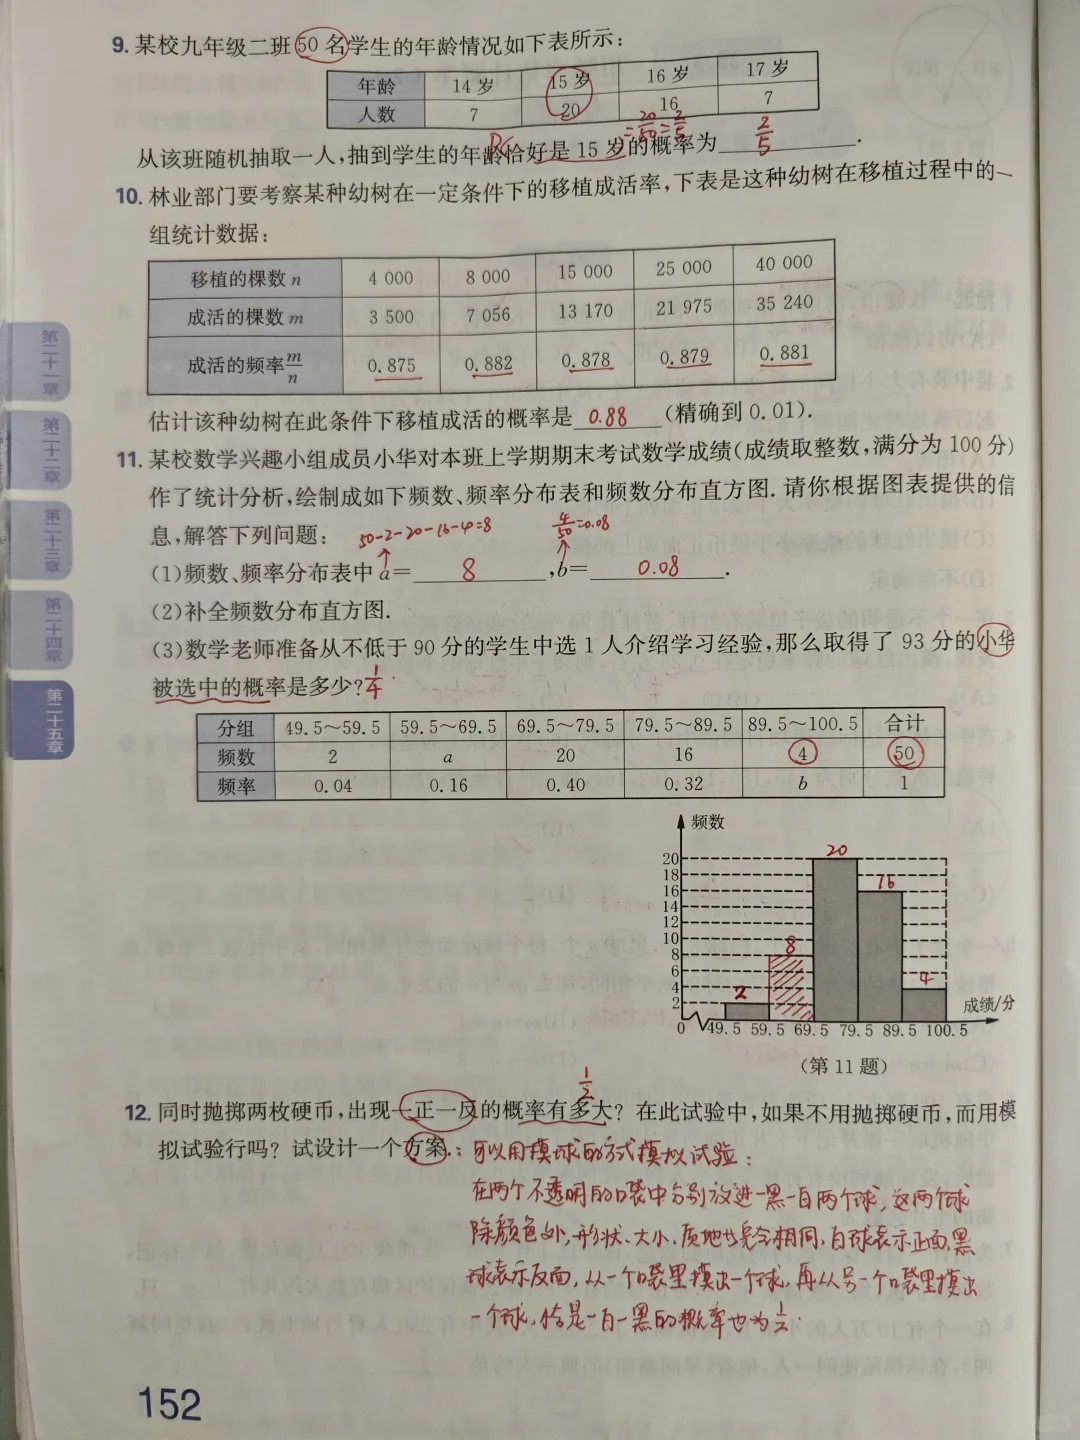 9. 某校九年级二班50名学生的年龄情况如下表所示:
年龄 14岁 15岁 16岁 17岁
人数 7 20 16 7
P( =20/50=2/5
从该班随机抽取一人,抽到学生的年龄恰好是15岁的概率为 2/5 .
10. 林业部门要考察某种幼树在一定条件下的移植成活率,下表是这种幼树在移植过程中的一
组统计数据:
移植的棵数n 4 000 8 000 15 000 25 000 40 000
成活的棵数m 3 500 7 056 13 170 21 975 35 240
成活的频率m/n 0.875 0.882 0.878 0.879 0.881
估计该种幼树在此条件下移植成活的概率是 0.88 (精确到0.01).
11. 某校数学兴趣小组成员小华对本班上学期期末考试数学成绩(成绩取整数,满分为100分)
作了统计分析,绘制成如下频数、频率分布表和频数分布直方图.请你根据图表提供的信
息,解答下列问题:
50-2-20-16-4=8 4/50=0.08
(1)频数、频率分布表中a= 8 ,b= 0.08 .
(2)补全频数分布直方图.
(3)数学老师准备从不低于90分的学生中选1人介绍学习经验,那么取得了93分的小华
被选中的概率是多少? 1/4
分组 49.5~59.5 59.5~69.5 69.5~79.5 79.5~89.5 89.5~100.5 合计
频数 2 a 20 16 4 50
频率 0.04 0.16 0.40 0.32 b 1
频数
20
18
16
14
12
10
8
6
4
2
2 8 20 16 4
0 49.5 59.5 69.5 79.5 89.5 100.5 成绩/分
(第11题)
1/2
12. 同时抛掷两枚硬币,出现一正一反的概率有多大?在此试验中,如果不用抛掷硬币,而用模
拟试验行吗?试设计一个方案.:可以用摸球的方式模拟试验:
在两个不透明的口袋中分别放进一黑一白两个球,这两个球
除颜色外,形状、大小、质地等完全相同,白球表示正面,黑
球表示反面,从一个口袋里摸出一个球,再从另一个口袋里摸出
一个球,恰是一白一黑的概率也为1/2.
第二十一章
第二十二章
第二十三章
第二十四章
第二十五章
152